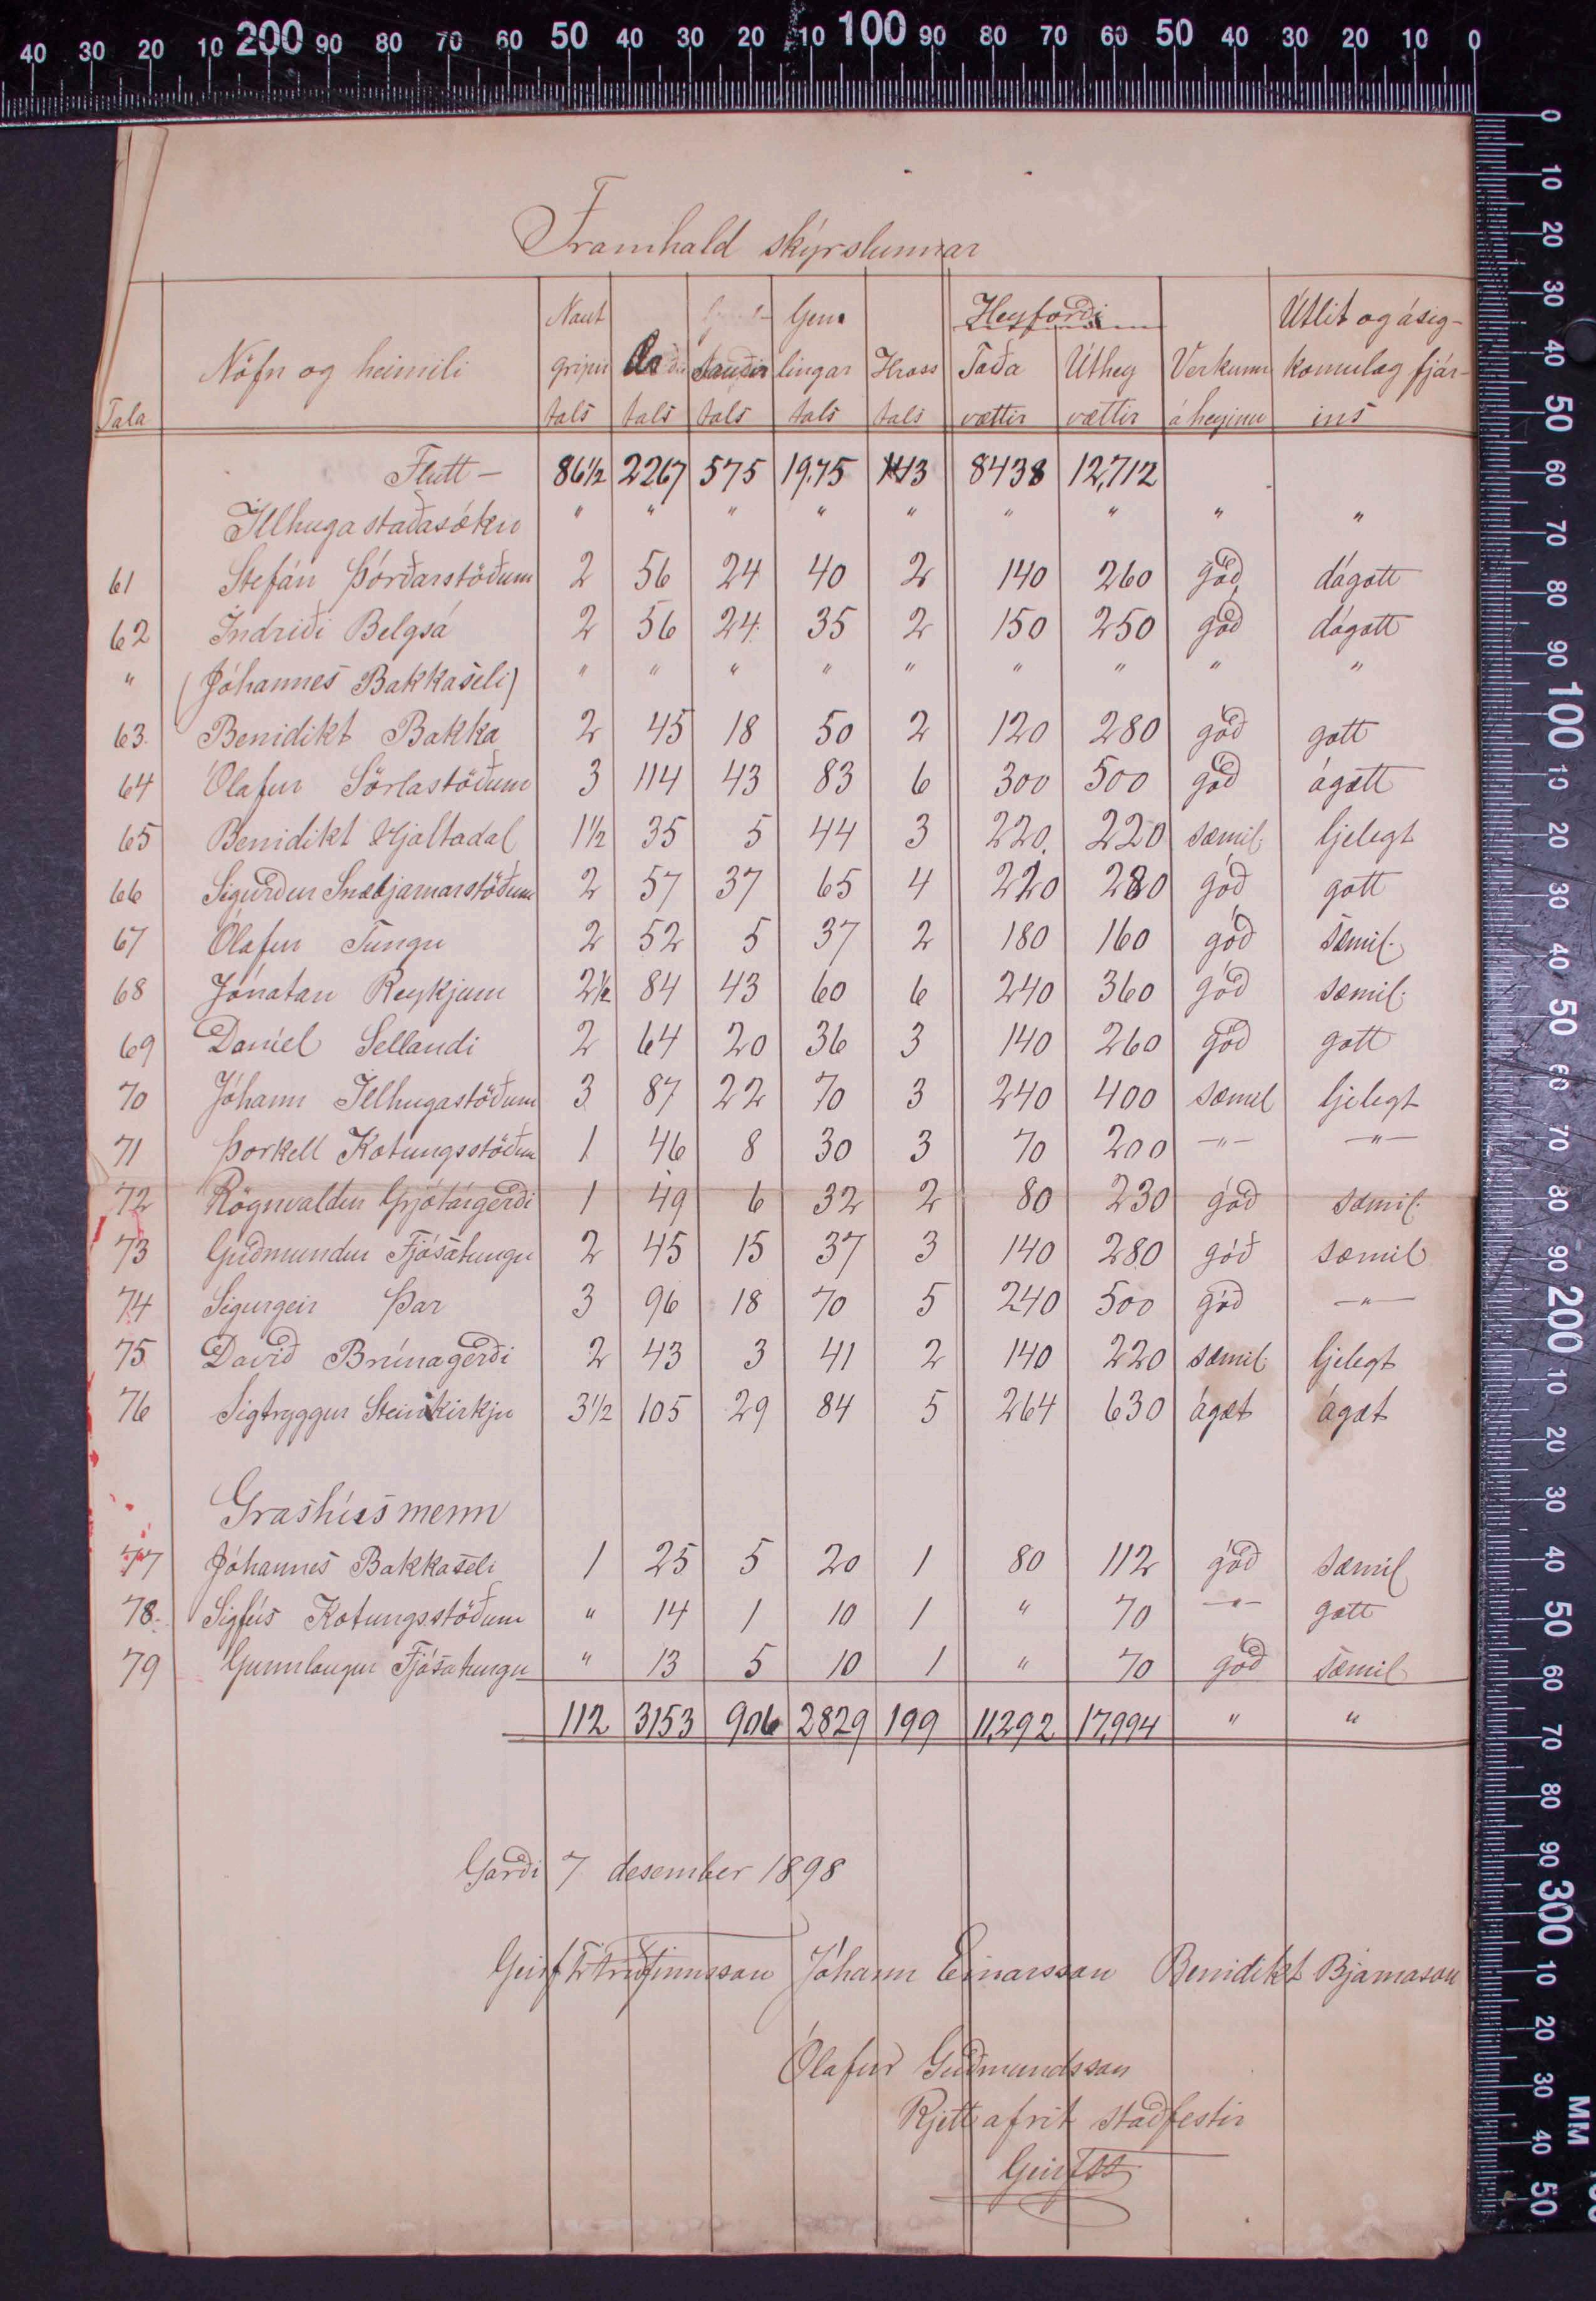 Framhald skýrslunnar
Tala | Nöfn og heimili | Naut gripir tals | Ær tals | Sauðir tals | Gem lingar tals | Hross tals | Heyforði Taða vættir | Úthey vættir | Verkunn á heyinu | Útlit og ásig- komulag fjár- ins
Flutt — 86½ 2267 575 1975 143 8438 12,712
Illhugastaðasókn " " " " " " " " "
61 Stefán Þórðarstöðum 2 56 24 40 2 140 260 góð dágott
62 Indriði Belgsá 2 56 24 35 2 150 250 góð dágott
" (Jóhannes Bakkaseli) " " " " " " " " "
63. Benidikt Bakka 2 45 18 50 2 120 280 góð gott
64 Ólafur Sörlastöðum 3 114 43 83 6 300 500 góð ágætt
65 Benidikt Hjaltadal 1½ 35 5 44 3 220 220 sæmil. ljelegt
66 Sigurður Snæbjarnarstöðum 2 57 37 65 4 220 280 góð gott
67 Ólafur Tungu 2 52 5 37 2 180 160 góð sæmil.
68 Jónatan Reykjum 2½ 84 43 60 6 240 360 góð sæmil.
69 Daníel Sellandi 2 64 20 36 3 140 260 góð gott
70 Jóhann Illhugastöðum 3 87 22 70 3 240 400 sæmil ljelegt
71 Þorkell Kotungsstöðum 1 46 8 30 3 70 200 —"— —"—
72 Rögnvaldur Grjótárgerði 1 49 6 32 2 80 230 góð sæmil.
73 Guðmundur Fjósatungu 2 45 15 37 3 140 280 góð sæmil
74 Sigurgeir Þar 3 96 18 70 5 240 500 góð —"—
75 Davið Brúnagerði 2 43 3 41 2 140 220 sæmil. ljelegt
76 Sigtryggur Steinkirkju 3½ 105 29 84 5 264 630 ágæt ágæt
Grashúsmenn
77 Jóhannes Bakkaseli 1 25 5 20 1 80 112 góð sæmil
78. Sigfús Kotungsstöðum " 14 1 10 1 " 70 —"— gott
79 Gunnlaugur Fjósatungu " 13 5 10 1 " 70 góð sæmil
112 3153 906 2829 199 11,292 17,994 " "
Garði 7 desember 1898
Jóhann Einarsson Benidikt Bjarnason
Ólafur Guðmundsson
Rjett afrit staðfestir